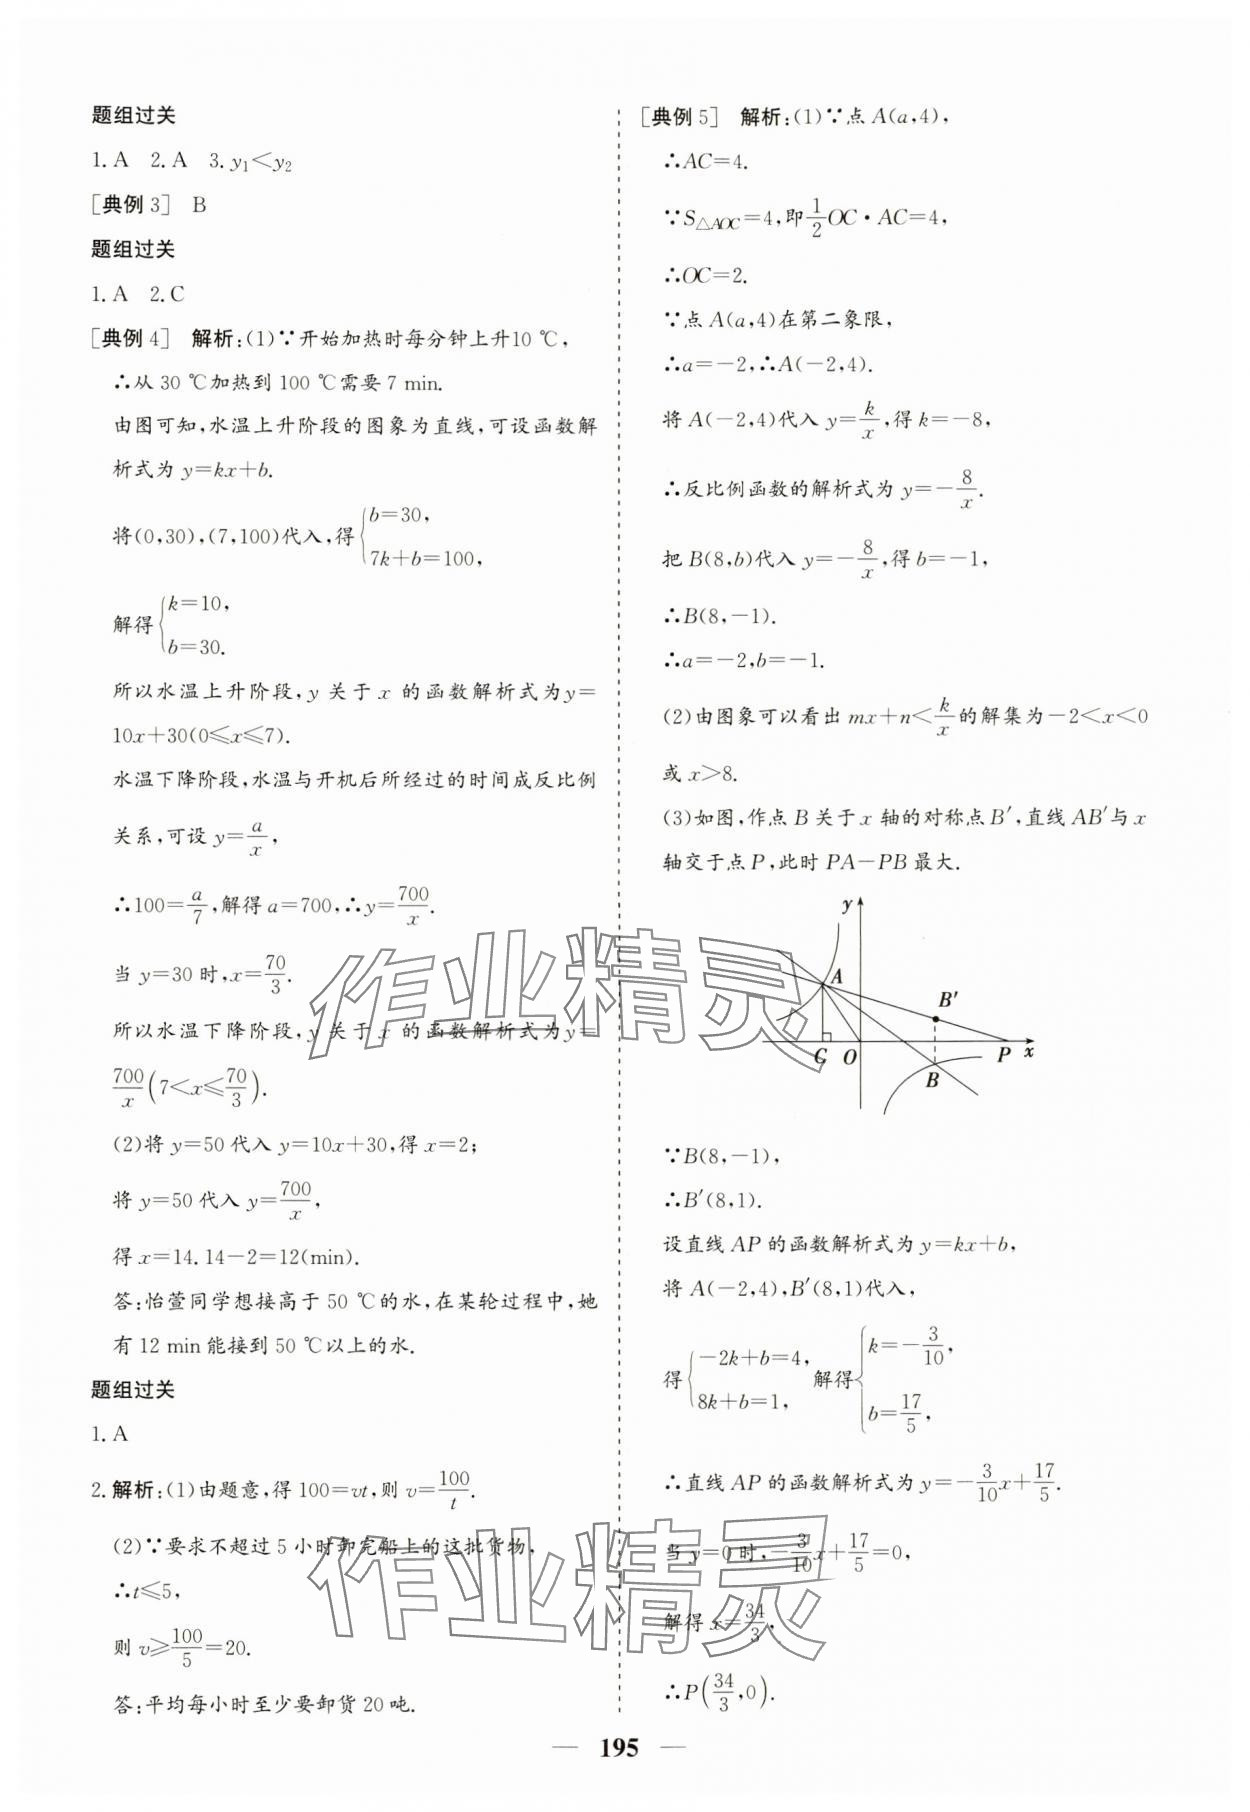 题组过关
1. A 2. A 3. y₁<y₂
[典例3] B
题组过关
1. A 2. C
[典例4] 解析:(1)∵开始加热时每分钟上升10 ℃,
∴从 30 ℃加热到 100 ℃需要 7 min.
由图可知,水温上升阶段的图象为直线,可设函数解
析式为 y=kx+b.
将(0,30),(7,100)代入,得{b=30, 7k+b=100,
解得{k=10, b=30.
所以水温上升阶段,y 关于 x 的函数解析式为y=
10x+30(0≤x≤7).
水温下降阶段,水温与开机后所经过的时间成反比例
关系,可设 y=a/x,
∴100=a/7,解得 a=700,∴y=700/x.
当 y=30 时,x=70/3.
所以水温下降阶段,y 关于 x 的函数解析式为y=
700/x(7<x≤70/3).
(2)将 y=50 代入 y=10x+30,得 x=2;
将 y=50 代入 y=700/x,
得 x=14. 14-2=12(min).
答:怡萱同学想接高于 50 ℃的水,在某轮过程中,她
有 12 min能接到 50 ℃以上的水.
题组过关
1. A
2. 解析:(1)由题意,得 100=vt,则 v=100/t.
(2)∵要求不超过 5 小时卸完船上的这批货物,
∴t≤5,
则 v≥100/5=20.
答:平均每小时至少要卸货 20 吨.
[典例5] 解析:(1)∵点 A(a,4),
∴AC=4.
∵S△AOC=4,即1/2OC·AC=4,
∴OC=2.
∵点 A(a,4)在第二象限,
∴a=-2,∴A(-2,4).
将 A(-2,4)代入 y=k/x,得 k=-8,
∴反比例函数的解析式为 y=-8/x.
把 B(8,b)代入 y=-8/x,得 b=-1,
∴B(8,-1).
∴a=-2,b=-1.
(2)由图象可以看出 mx+n<k/x的解集为-2<x<0
或 x>8.
(3)如图,作点 B 关于 x 轴的对称点 B′,直线 AB′与 x
轴交于点 P,此时 PA-PB 最大.
y
A
B′
C O P x
B
∵B(8,-1),
∴B′(8,1).
设直线 AP 的函数解析式为 y=kx+b,
将 A(-2,4),B′(8,1)代入,
得{-2k+b=4, 8k+b=1, 解得{k=-3/10, b=17/5,
∴直线 AP 的函数解析式为 y=-3/10x+17/5.
当 y=0 时,-3/10x+17/5=0,
解得 x=34/3,
∴P(34/3,0).
作业精灵
作业精灵
— 195 —